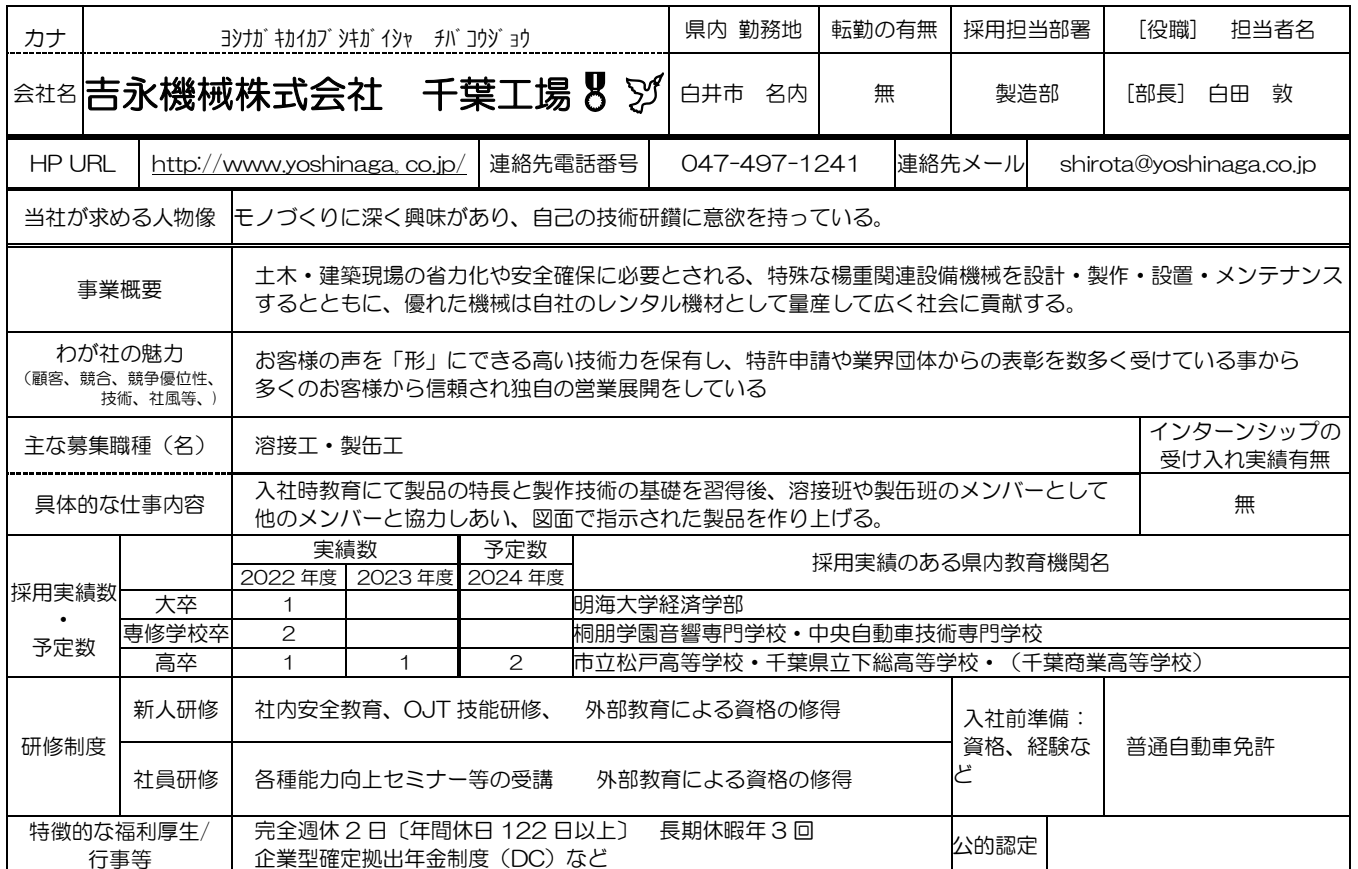 カナ ﾖｼﾅｶﾞｷｶｲｶﾌﾞｼｷｶﾞｲｼｬ ﾁﾊﾞｺｳｼﾞｮｳ 県内 勤務地 転勤の有無 採用担当部署 ［役職］ 担当者名
会社名 吉永機械株式会社 千葉工場 白井市 名内 無 製造部 ［部長］ 白田 敦
HP URL http://www.yoshinaga.co.jp/ 連絡先電話番号 047-497-1241 連絡先メール shirota@yoshinaga.co.jp
当社が求める人物像 モノづくりに深く興味があり、自己の技術研鑽に意欲を持っている。
事業概要
土木・建築現場の省力化や安全確保に必要とされる、特殊な楊重関連設備機械を設計・製作・設置・メンテナンス
するとともに、優れた機械は自社のレンタル機材として量産して広く社会に貢献する。
わが社の魅力
（顧客、競合、競争優位性、
技術、社風等、）
お客様の声を「形」にできる高い技術力を保有し、特許申請や業界団体からの表彰を数多く受けている事から
多くのお客様から信頼され独自の営業展開をしている
主な募集職種（名） 溶接工・製缶工
インターンシップの
受け入れ実績有無
具体的な仕事内容
入社時教育にて製品の特長と製作技術の基礎を習得後、溶接班や製缶班のメンバーとして
他のメンバーと協力しあい、図面で指示された製品を作り上げる。
無
採用実績数
・
予定数
実績数 予定数 採用実績のある県内教育機関名
2022年度 2023年度 2024年度
大卒 1 明海大学経済学部
専修学校卒 2 桐朋学園音響専門学校・中央自動車技術専門学校
高卒 1 1 2 市立松戸高等学校・千葉県立下総高等学校・（千葉商業高等学校）
研修制度
新人研修 社内安全教育、OJT技能研修、 外部教育による資格の修得
社員研修 各種能力向上セミナー等の受講 外部教育による資格の修得
入社前準備：
資格、経験な
ど
普通自動車免許
特徴的な福利厚生/
行事等
完全週休2日〔年間休日122日以上〕 長期休暇年3回
企業型確定拠出年金制度（DC）など
公的認定